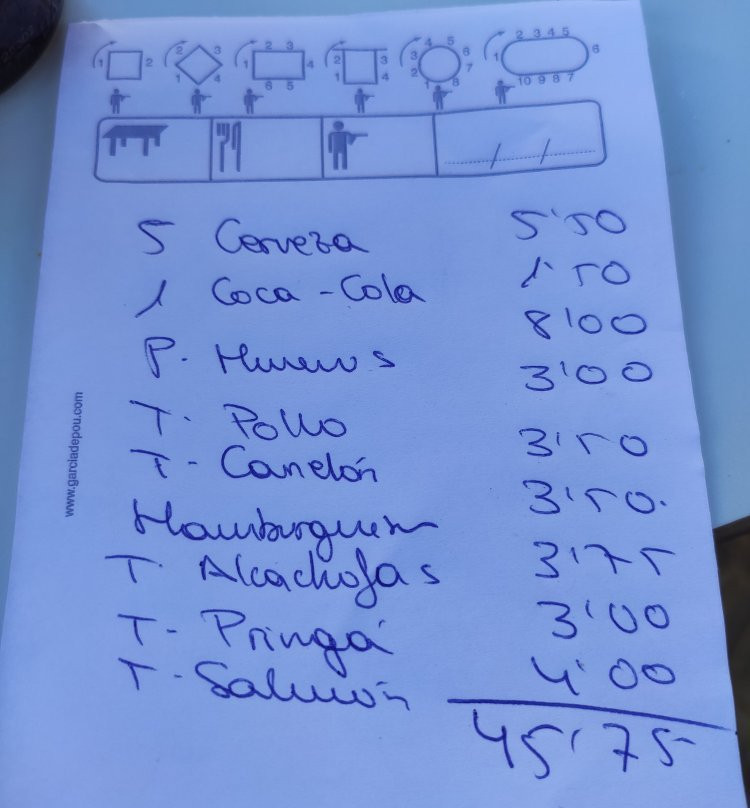 1 2
1 2 3 4
1 2 3 4 5 6
1 2 3 4
1 2 3 4 5 6 7 8
1 2 3 4 5 6 7 8 9 10
/ /
5 Cerveza 5'50
1 Coca-Cola 1'50
P. Huevos 8'00
T. Pollo 3'00
T- Canelón 3'50
Hamburguesa 3'50.
T. Alcachofas 3'75
T- Pringá 3'00
T-Salmón 4'00
45'75
www.garciadepou.com